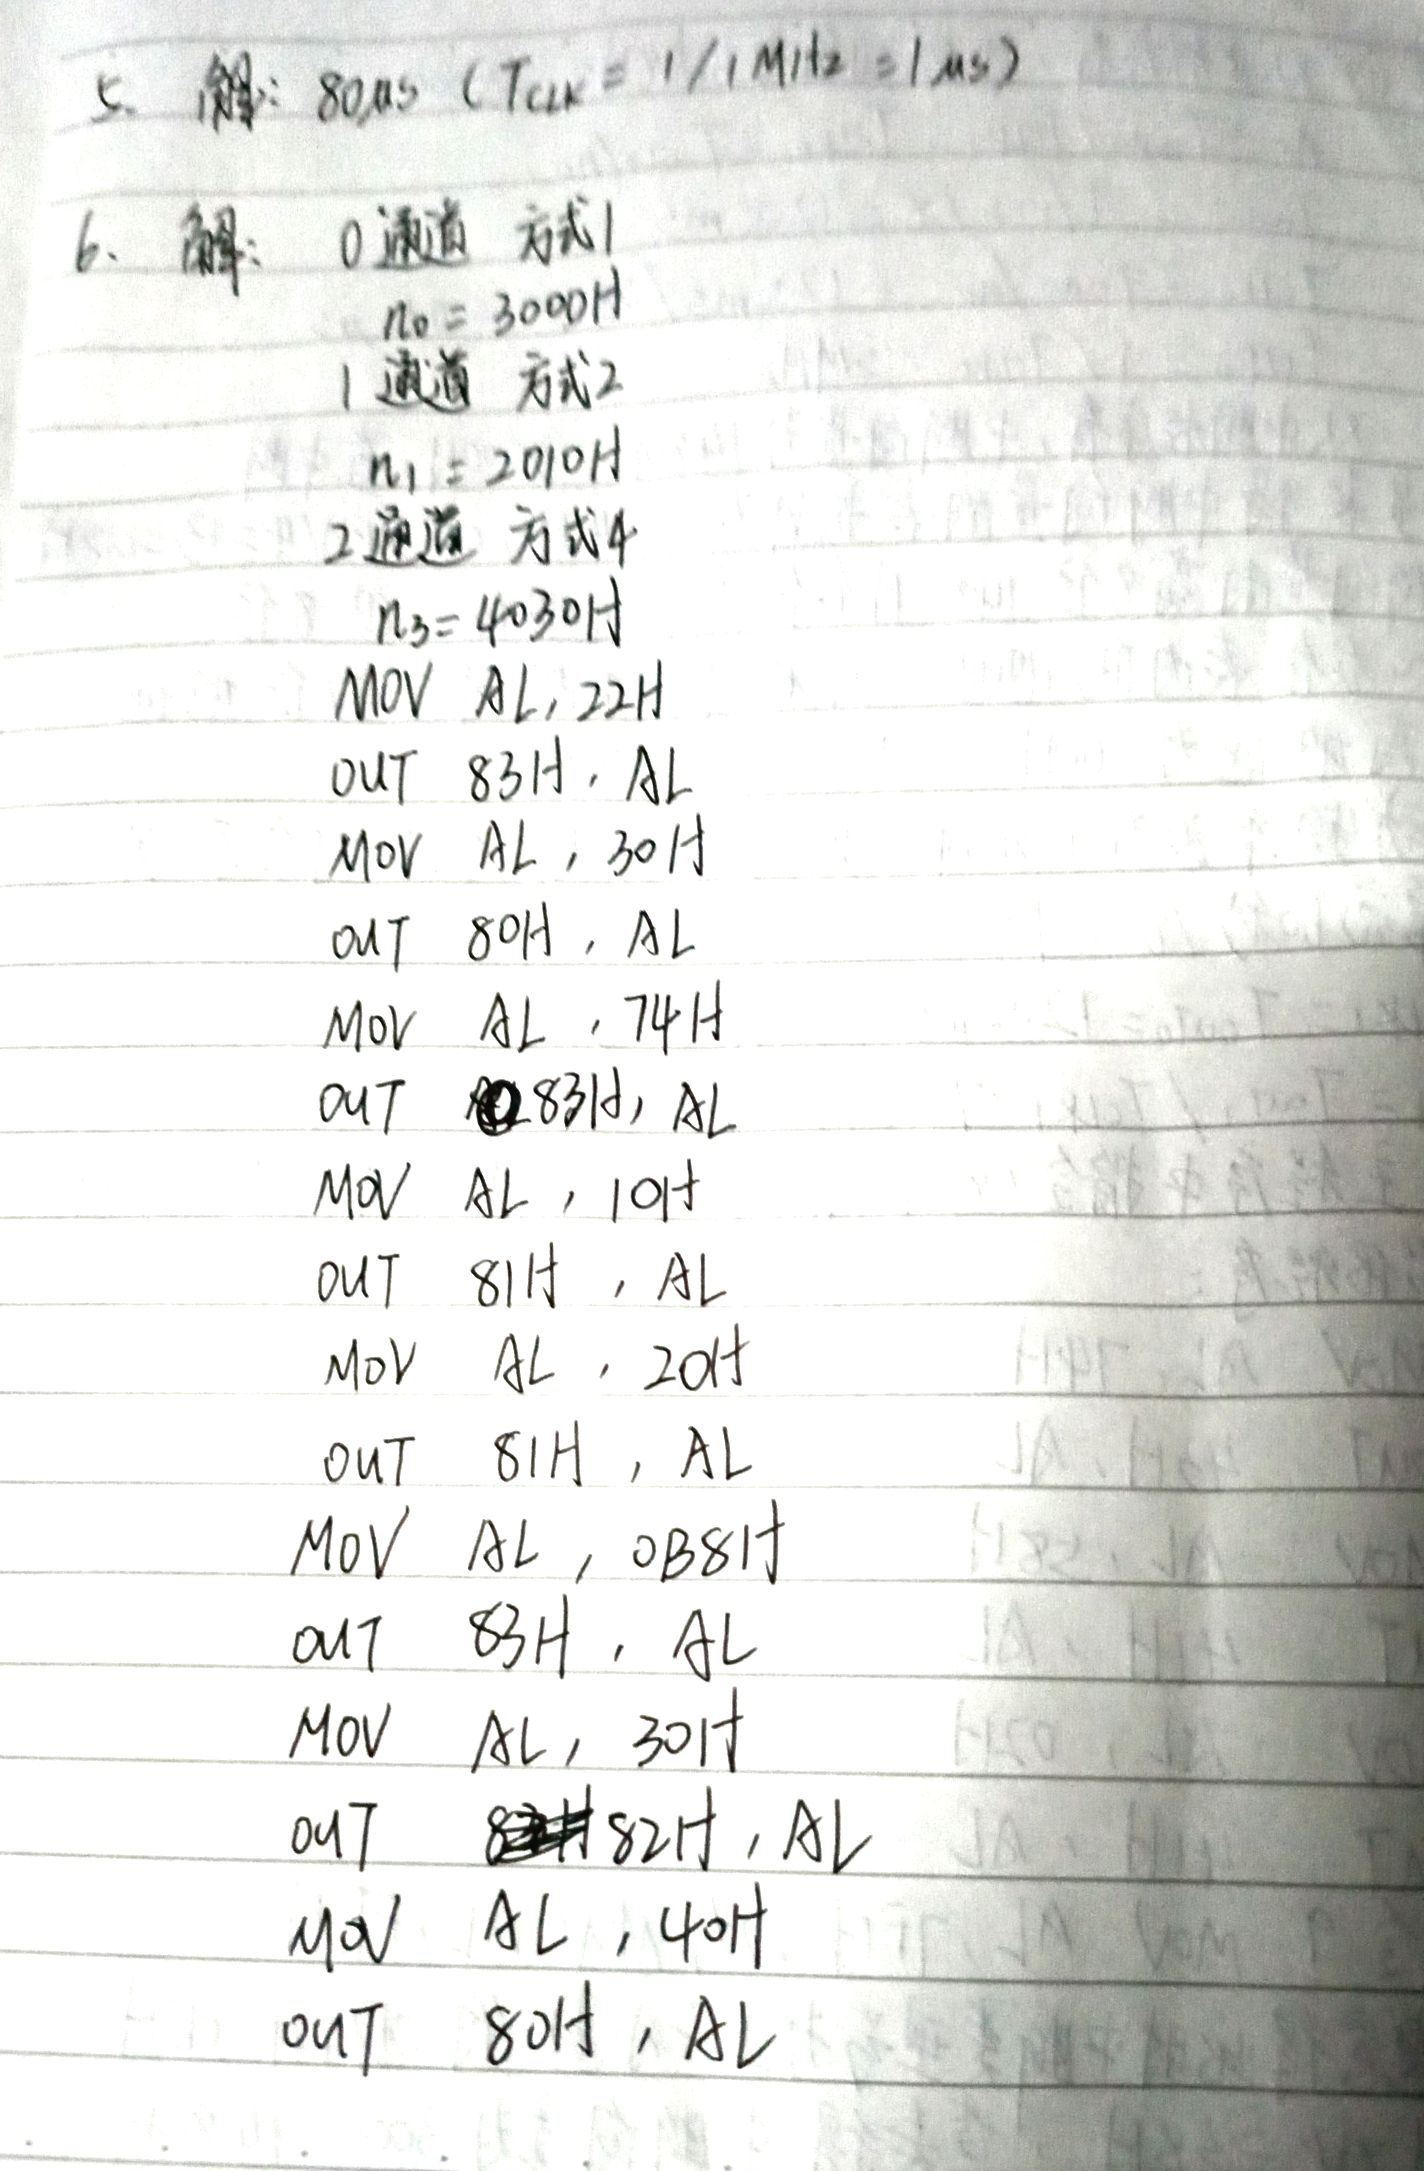 5. 解: 80μs (TCLK = 1/1MHz = 1μs)
6、 解: 0通道 方式1
n0 = 3000H
1通道 方式2
n1 = 2010H
2通道 方式4
n3 = 4030H
MOV AL, 22H
OUT 83H, AL
MOV AL, 30H
OUT 80H, AL
MOV AL, 74H
OUT 83H, AL
MOV AL, 10H
OUT 81H, AL
MOV AL, 20H
OUT 81H, AL
MOV AL, 0B8H
OUT 83H, AL
MOV AL, 30H
OUT 82H, AL
MOV AL, 40H
OUT 80H, AL